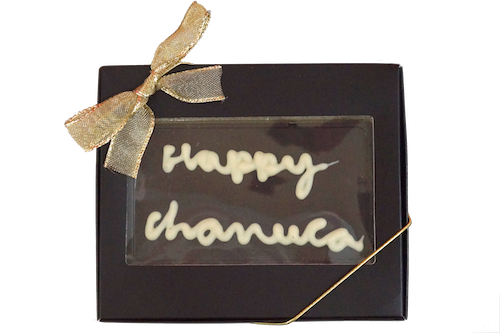 Happy
chanuca